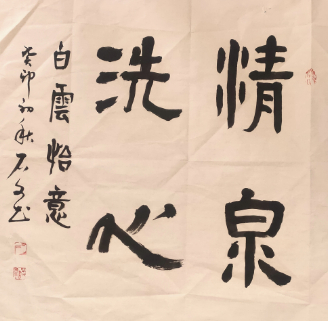 情泉
洗心
白雲怡意
癸卯初秋石文书